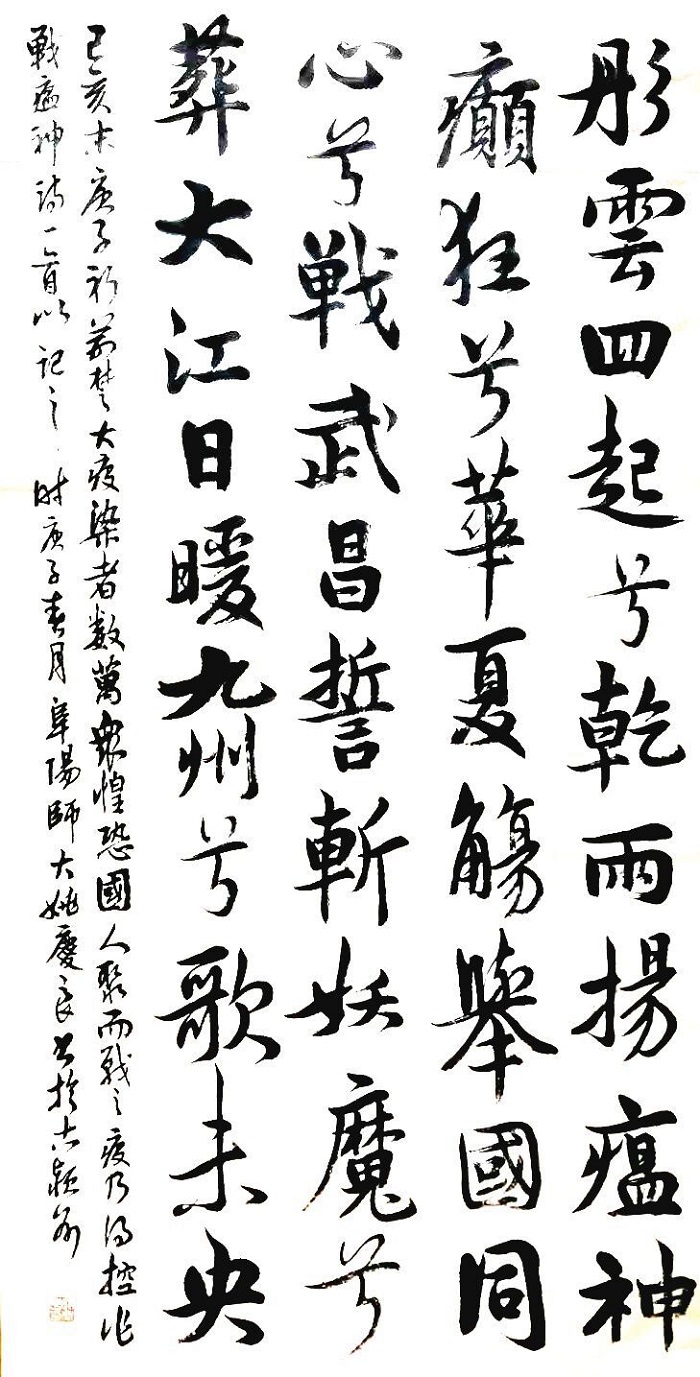 彤雲四起兮乾雨揚瘟神
癲狂兮華夏觴舉國同
心兮戰武昌誓斬妖魔兮
葬大江日暖九州兮歌未央
己亥末庚子初荊楚大疫染者数萬衆惶恐國人聚而戰之疫乃得控作
戰瘟神詩一首以記之時庚子春月阜陽師大姚慶良書於古潁